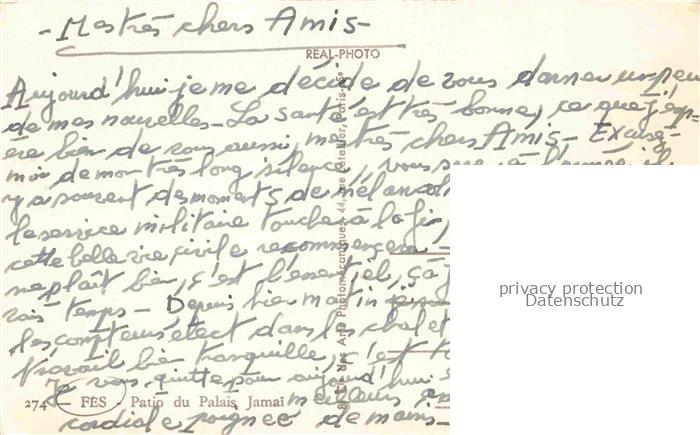 - Mes très chers Amis -
REAL-PHOTO
Aujourd'hui je me décide de vous donner un peu
de mes nouvelles - La santé est très bonne, ce que j'esp-
ère bien de vous aussi, mes très chers Amis - Excusez
moi de mon très long silence, vous savez à l'armée il
y a souvent des moments de mélancol
le service militaire touche à la fin,
cette belle vie civile recommencera -
me plaît bien, c'est l'essentiel, ça
vais temps - Depuis hier matin je
les compteurs élect dans les chalet
travail bien tranquille, c'est
Je vous quitte pour aujourd'hui
meilleurs
cordiale poignée de mains -
274 - FÈS - Patio du Palais Jamaï
des Arts Photomécaniques, 44, rue Letellier, Paris-15e
privacy protection
Datenschutz